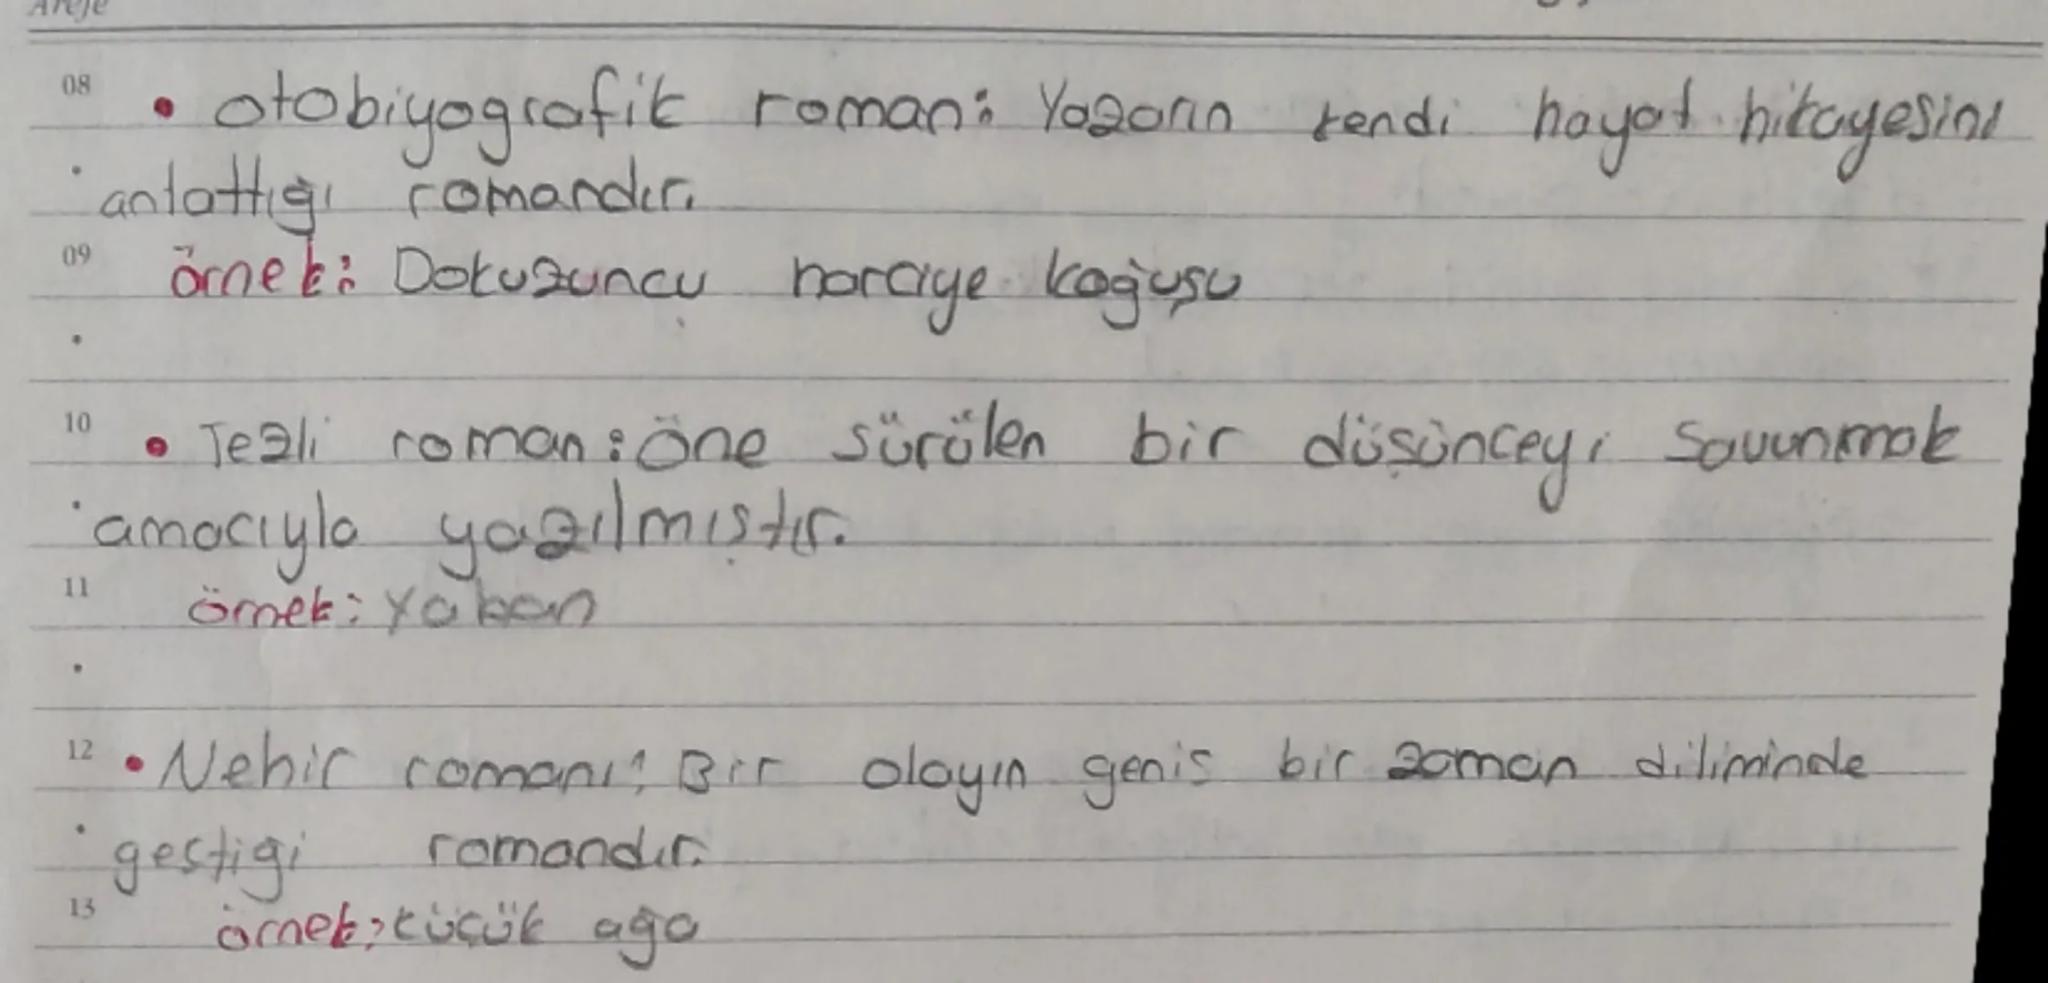 08 • otobiyografik roman: Yazarın kendi hayat hikayesini
anlattığı romandır.
09 örnek: Dokuzuncu hariciye koğuşu
10 • Tezli roman: öne sürülen bir düşünceyi savunmak
amacıyla yazılmıştır.
11 örnek: Yaban
12 • Nehir romanı: Bir olayın genis bir zaman diliminde
gestigi romandır.
13 örnek: küçük ağa